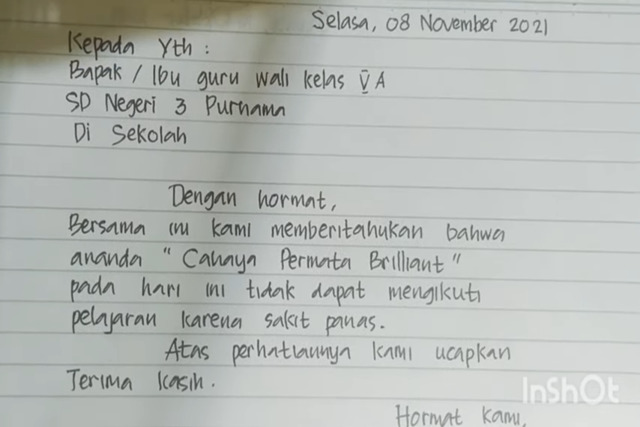 Selasa, 08 November 2021
Kepada Yth :
Bapak / Ibu guru wali kelas V A
SD Negeri 3 Purnama
Di Sekolah
Dengan hormat,
Bersama ini kami memberitahukan bahwa
ananda " Cahaya Permata Brilliant "
pada hari ini tidak dapat mengikuti
pelajaran karena sakit panas.
Atas perhatiannya kami ucapkan
Terima kasih.
InShOt
Hormat kami,